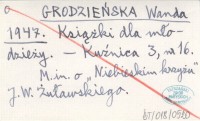 GRODZIEŃSKA Wanda
1947. Książki dla mło-
dzieży. – Kuźnica 3, na 16.
M.in. o „Niebieskim krzyżu"
J.W. Żuławskiego.